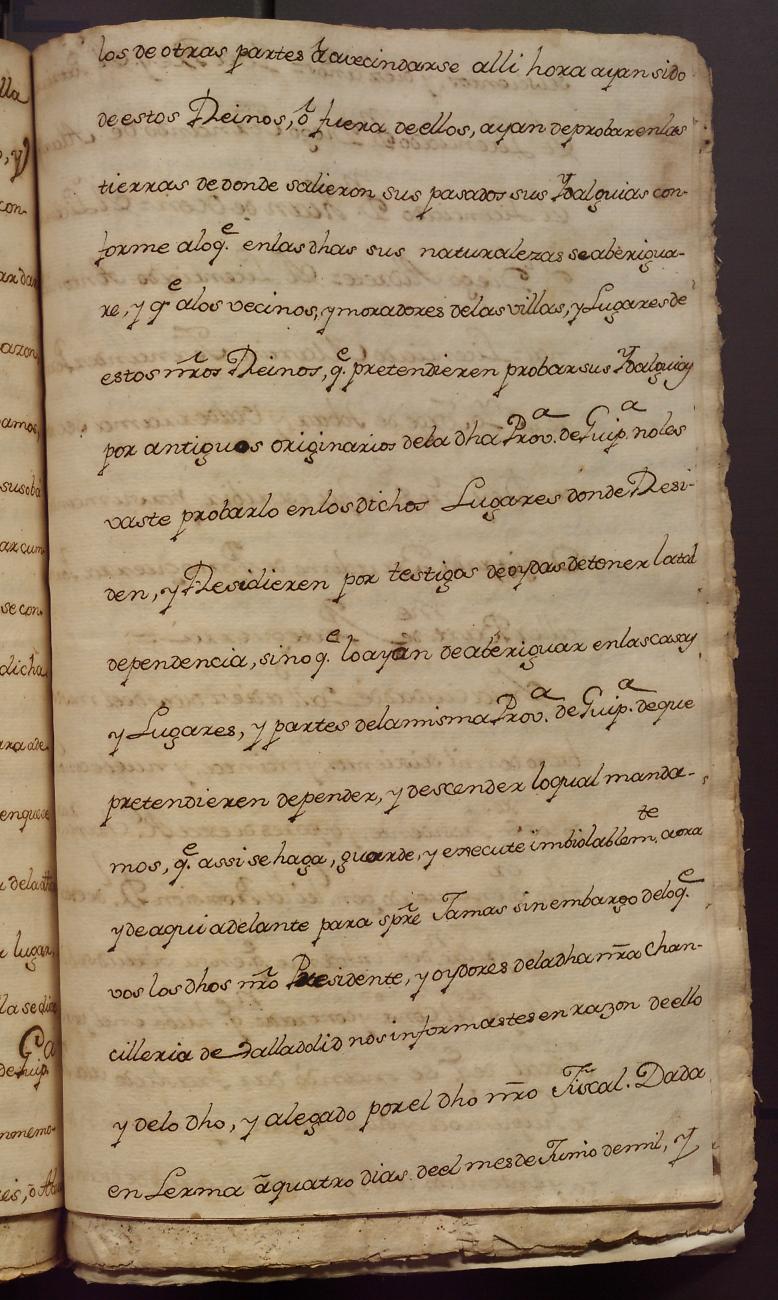 los de otras partes â avecindarse alli hora ayan sido
de estos Reinos, ô fuera de ellos, ayan de probar en las
tierras de donde salieron sus pasados sus Ydalguias con-
forme alo q.e en las dhas sus naturalezas se aberigua-
re, y q.e alos vecinos, y moradores delas villas, y Lugares de
estos nr̃os Reinos, q.e pretendieren probar sus Ydalguias
por antiguos originarios dela dha Prov.a de Guip.a no les
vaste probarlo en los dichos Lugares donde Resi-
den, y Residieren por testigos de oydas de tener la tal
dependencia, sino q.e lo ayan de aberiguar en las casas
y Lugares, y partes dela misma Prov.a de Guip.a de que
pretendieren depender, y descender lo qual manda-
mos, q.e assi se haga, guarde, y execute imbiolablem.te aora
y de aqui adelante para spr̃e Jamas sin embargo delo q.e
vos los dhos nr̃o Presidente, y oydores dela dha nr̃a Chan-
cilleria de Valladolid nos informastes en razon de ello
y delo dho, y alegado por el dho nr̃o Fiscal. Dada
en Lerma â quatro dias de el mes de Junio de mil, y